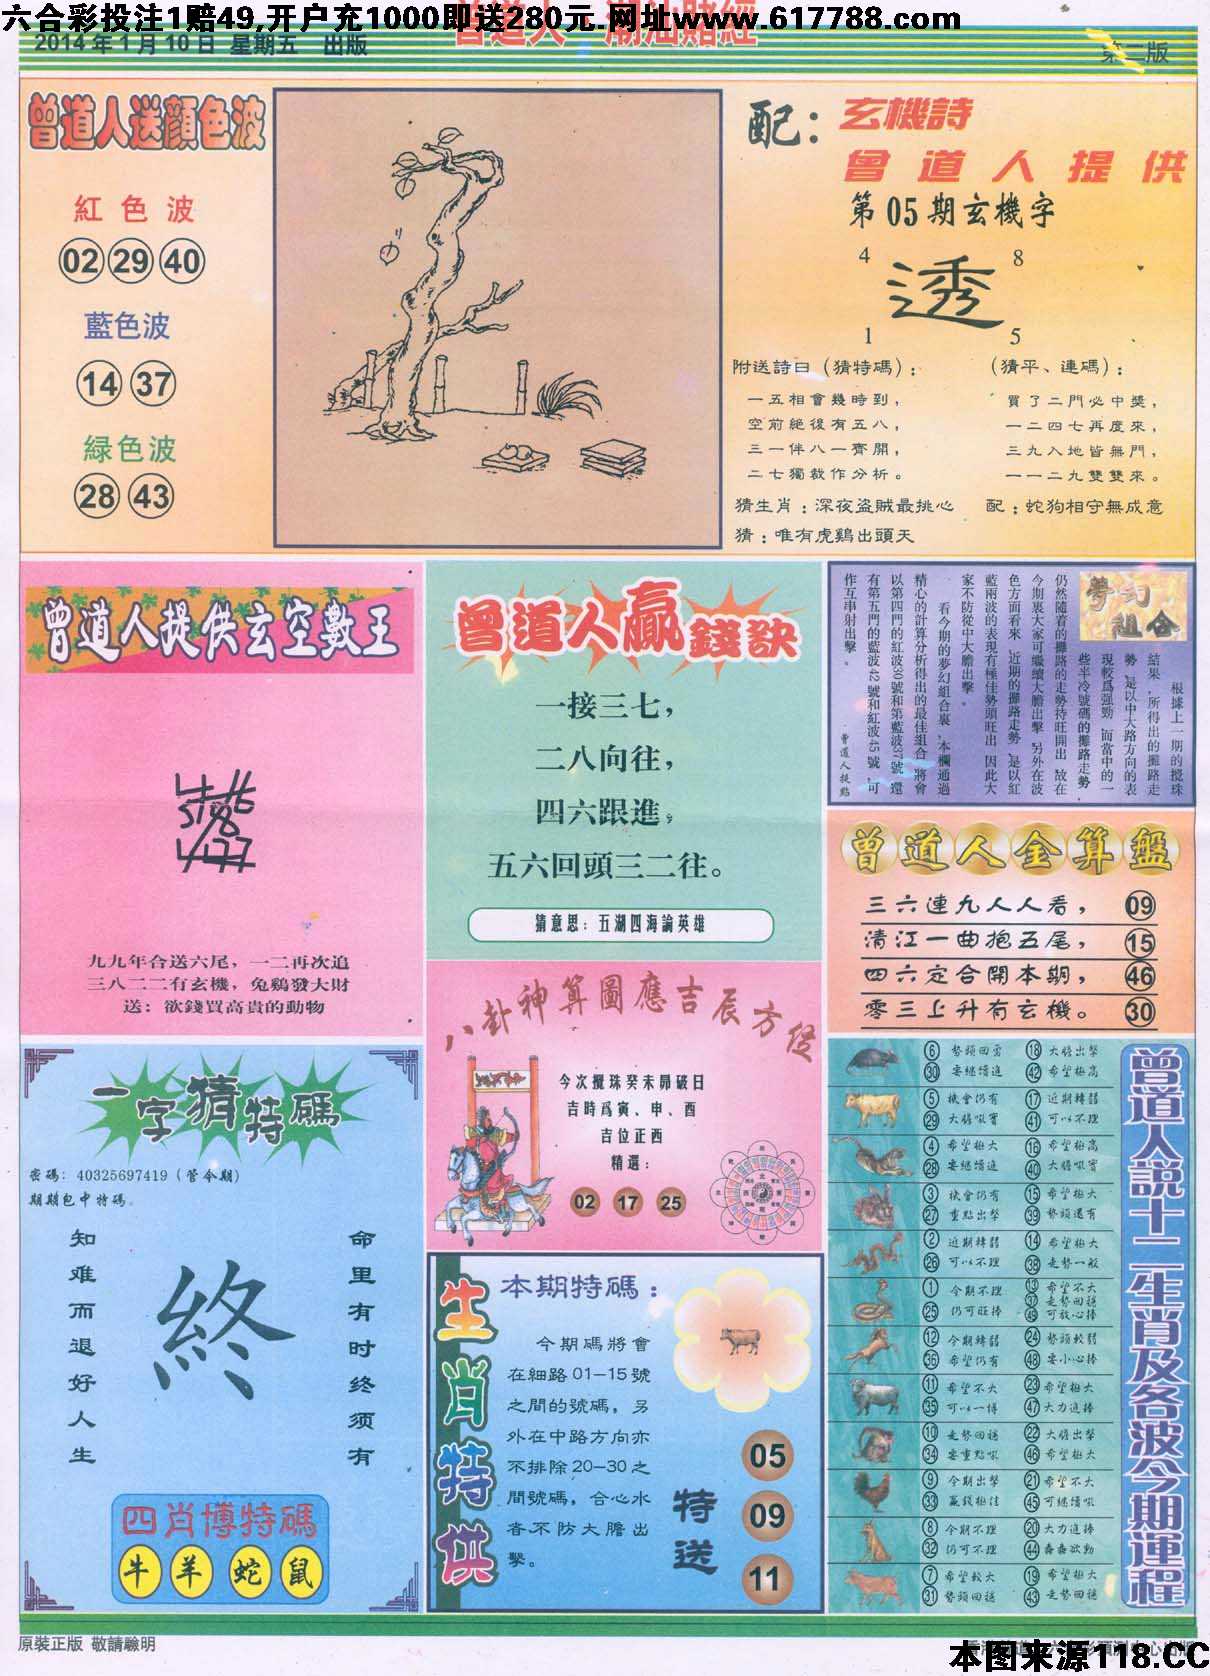 六合彩投注1赔49,开户充1000即送280元.网址www.617788.com
2014年1月10日 星期五 出版
第二版
曾道人送顏色波
紅色波
02 29 40
藍色波
14 37
緑色波
28 43
配：玄機詩
曾道人提供
第05期玄機字
4 8
透
1 5
附送詩曰（猜特碼）：
一五相會幾時到，
空前絕後有五八，
三一伴八一齊開，
二七獨裁作分析。
（猜平、連碼）：
買了二門必中獎，
一二四七再度來，
三九入地皆無門，
一一二九雙雙來。
猜生肖：深夜盜賊最挑心
配：蛇狗相守無成意
猜：唯有虎鷄出頭天
曾道人提供玄空數王
九九年合送六尾，一二再次追
三八二二有玄機，兔鷄發大財
送：欲錢買高貴的動物
曾道人贏錢訣
一接三七，
二八向往，
四六跟進，
五六回頭三二往。
猜意思：五湖四海論英雄
夢幻組合
根據上一期的攪珠
結果，所得出的攤路走
勢，是以中大路方向的表
現較爲强勁，而當中的一
些半冷號碼的攤路走勢，
仍然隨着的攤路的走勢持旺開出，故在
今期裏大家可繼續大膽出擊，另外在波
色方面看來，近期的攤路走勢，是以紅
藍兩波的表現有極佳勢頭旺出，因此大
家不防從中大膽出擊。
看今期的夢幻組合裏，本欄通過
精心的計算分析得出的最佳組合，將會
以第四門的紅波30號和第藍波37號，還
有第五門的藍波42號和紅波45號，可
作互串射出擊。
曾道人提點
曾道人金算盤
三六連九人人看， 09
清江一曲抱五尾， 15
四六定合開本期， 46
零三上升有玄機。 30
八卦神算圖應吉辰方從
今次攪珠癸未昴破日
吉時爲寅、申、酉
吉位正西
精選：
02 17 25
一字猜特碼
密碼：40325697419（管令期）
期期包中特碼。
知难而退好人生
終
命里有时终须有
四肖博特碼
牛 羊 蛇 鼠
生肖特供
本期特碼：
今期碼將會
在細路01-15號
之間的號碼，另
外在中路方向亦
不排除20-30之
間號碼，合心水
者不防大膽出
擊。
特送
05
09
11
曾道人說十二生肖及各波今期運程
6 勢頭回勇 18 大膽出擊
30 要継續追 42 希望極高
5 機會仍有 17 近期轉弱
29 大膽吼實 41 可以不理
4 希望極大 16 希望極高
28 要継續追 40 大膽吼實
3 機會仍有 15 希望極大
27 重點出擊 39 勢頭還有
2 近期轉弱 14 希望極大
26 可以不理 38 走勢一般
1 今期不理 13 希望不大
25 仍可旺捧 37 走勢回穩
49 可放心捧
12 今期轉弱 24 勢頭較弱
36 希望仍有 48 要小心捧
11 希望不大 23 希望極大
35 可以一博 47 大力追捧
10 走勢回穩 22 大膽出擊
34 要重點吼 46 希望極大
9 今期出擊 21 希望不大
33 贏錢極佳 45 可継續吼
8 今期不理 20 大力追捧
32 仍可不理 44 蠢蠢欲動
7 希望較大 19 希望極大
31 勢頭回穩 43 走勢回穩
原裝正版 敬請驗明
本图来源118.CC